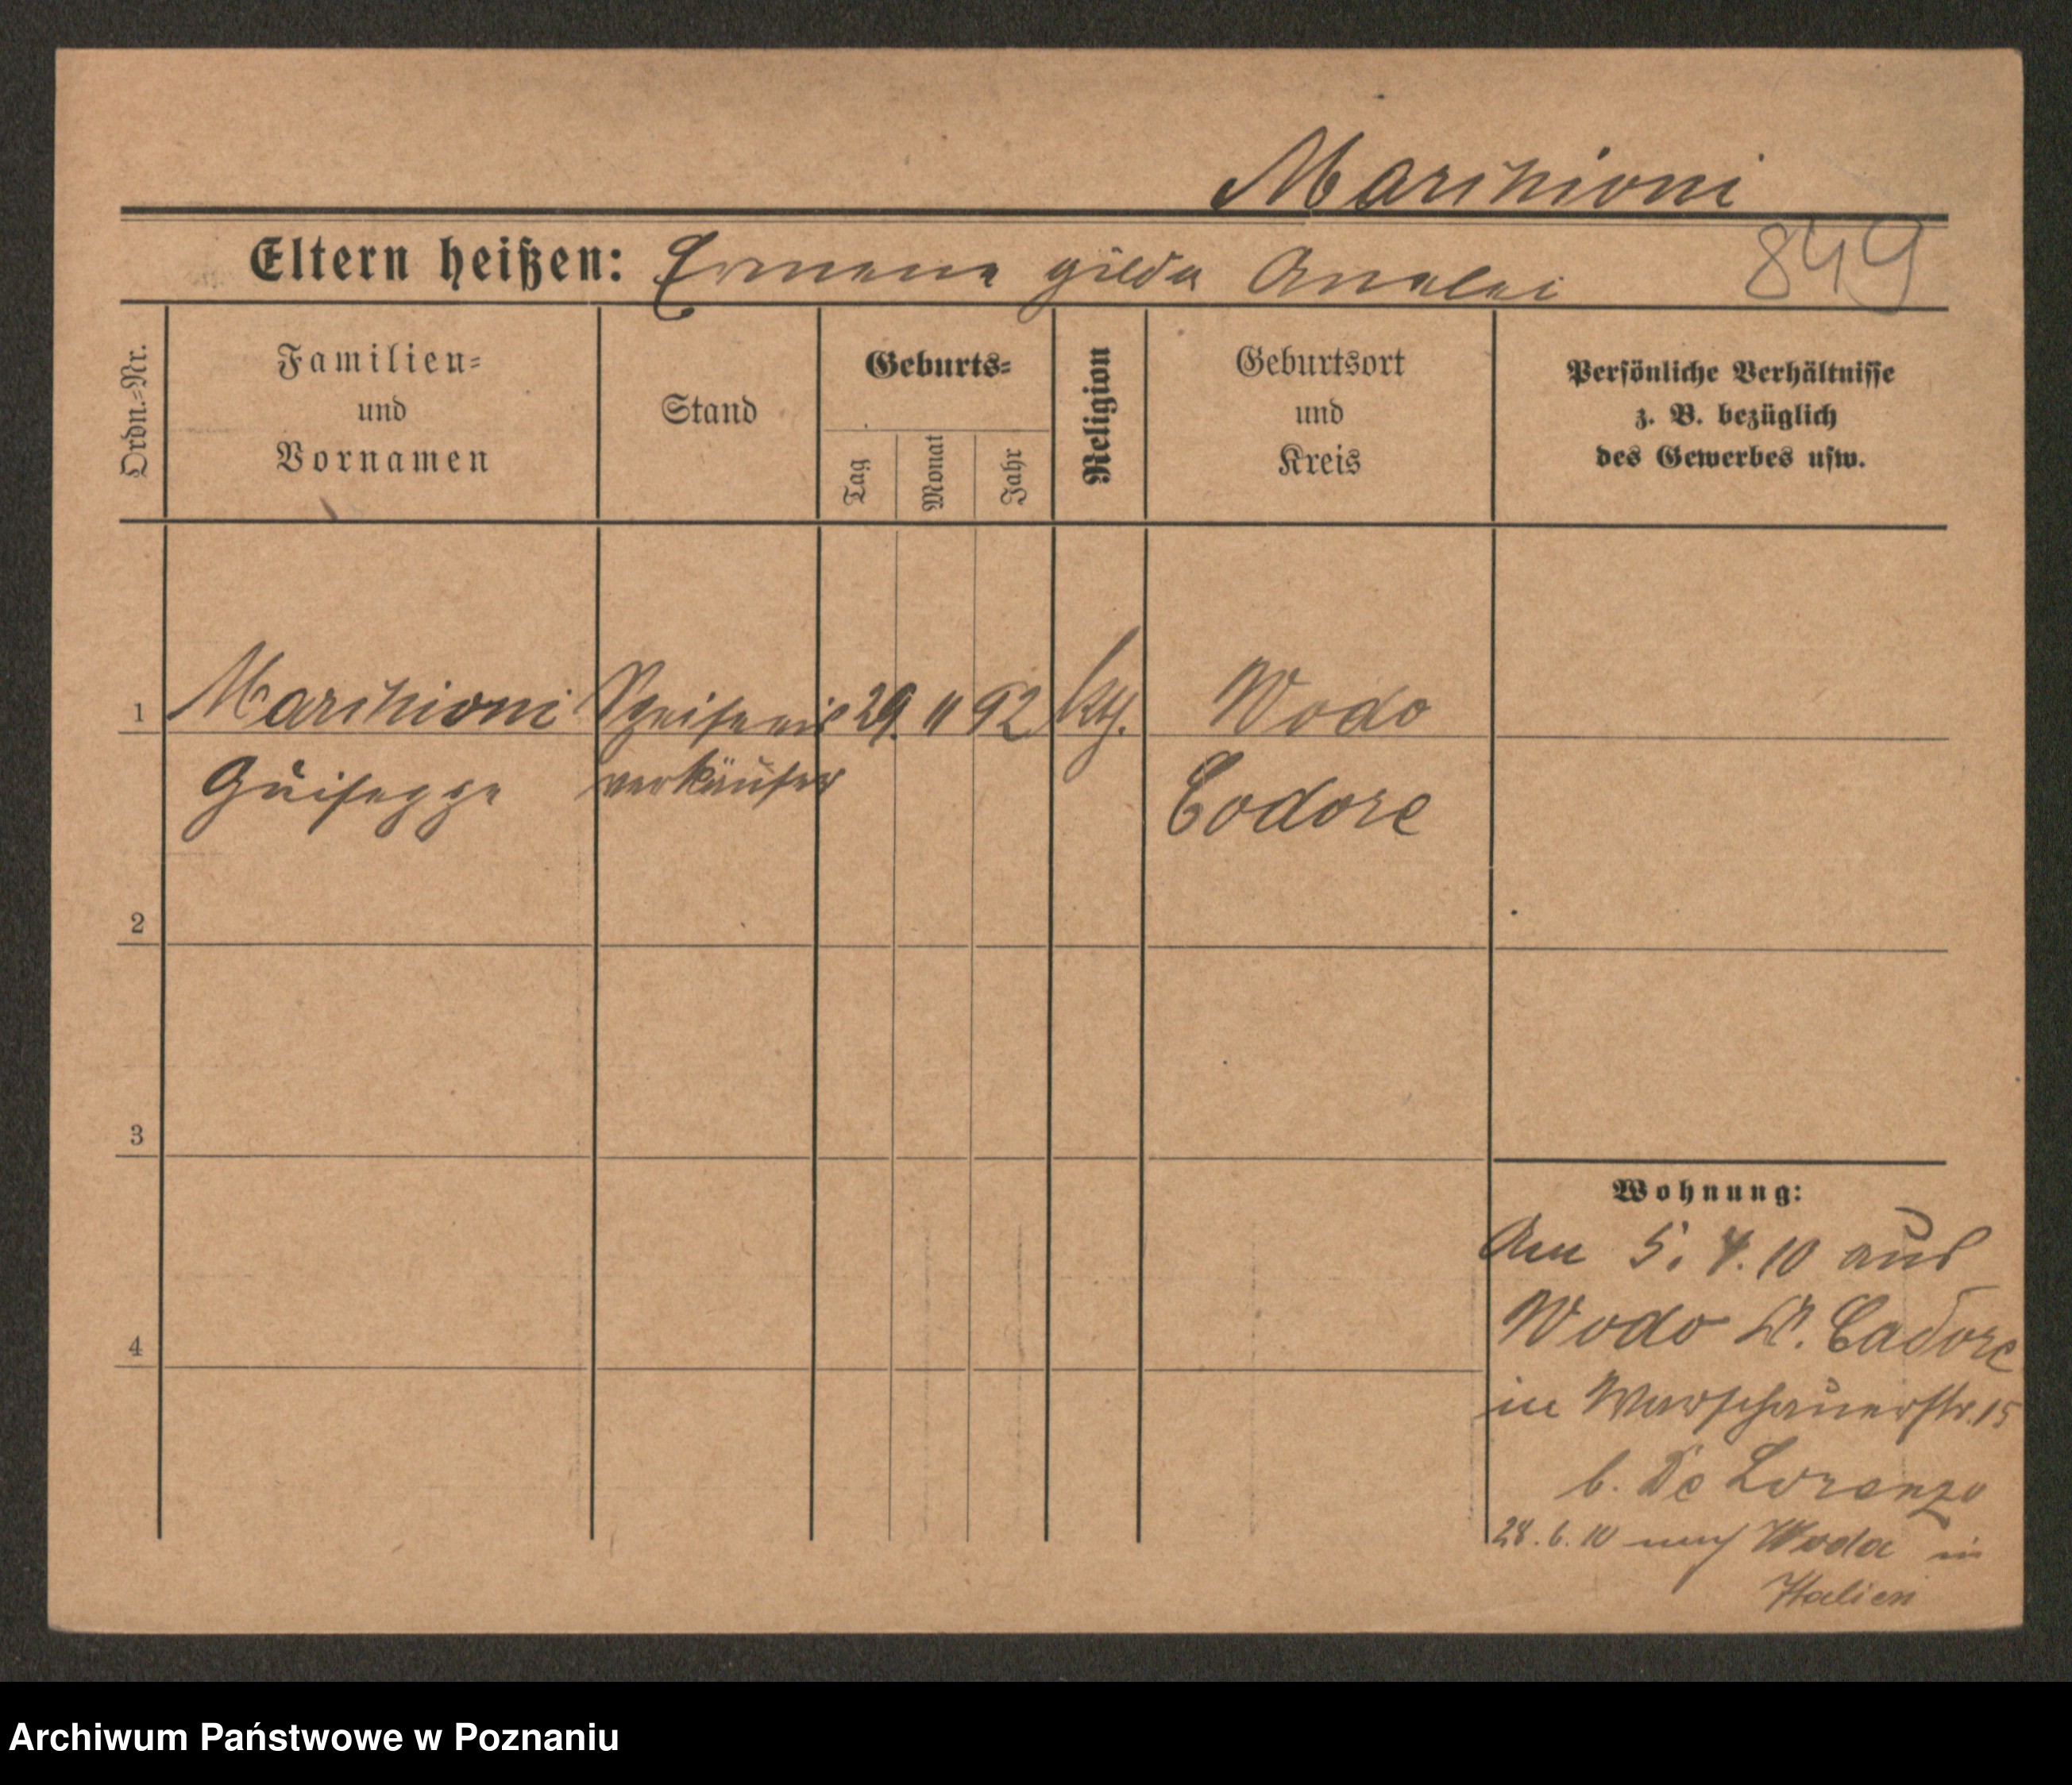 Marchioni
Eltern heißen: Ermene gilda
849
Ordn.-Nr.
Familien-
und
Vornamen
Stand
Geburts-
Tag
Monat
Jahr
Religion
Geburtsort
und
Kreis
Persönliche Verhältnisse
z. B. bezüglich
des Gewerbes usw.
1 Marchioni Speiseeis 29. 11 92 kth. Wodo
Guiseppe verkäufer Codore
2
3
4
Wohnung:
Am 5. 4. 10 aus
Wodo Cadore
in Warschauerstr. 15
b. De Lorenzo
28. 6. 10 nach Wodo in
Italien
Archiwum Państwowe w Poznaniu